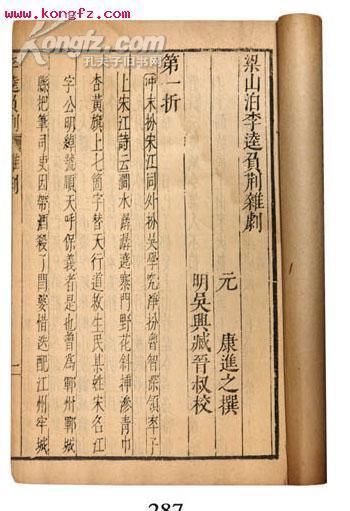 www.kongfz.com
孔夫子旧书网
www.kongfz.com
梁山泊李逵負荊雜劇
元　康進之撰
明吳興臧晉叔校
第一折
沖末扮宋江同外扮吳學究淨扮魯智深領卒子
上宋江詩云澗水潺潺遶寨門野花斜插滲青巾
杏黃旗上七箇字替天行道救生民某姓宋名江
字公明綽號順天呼保義者是也曾爲鄆州鄆城
縣把筆司吏因帶酒殺了閻婆惜迭配江州牢城
李逵負荊 雜劇 一
287